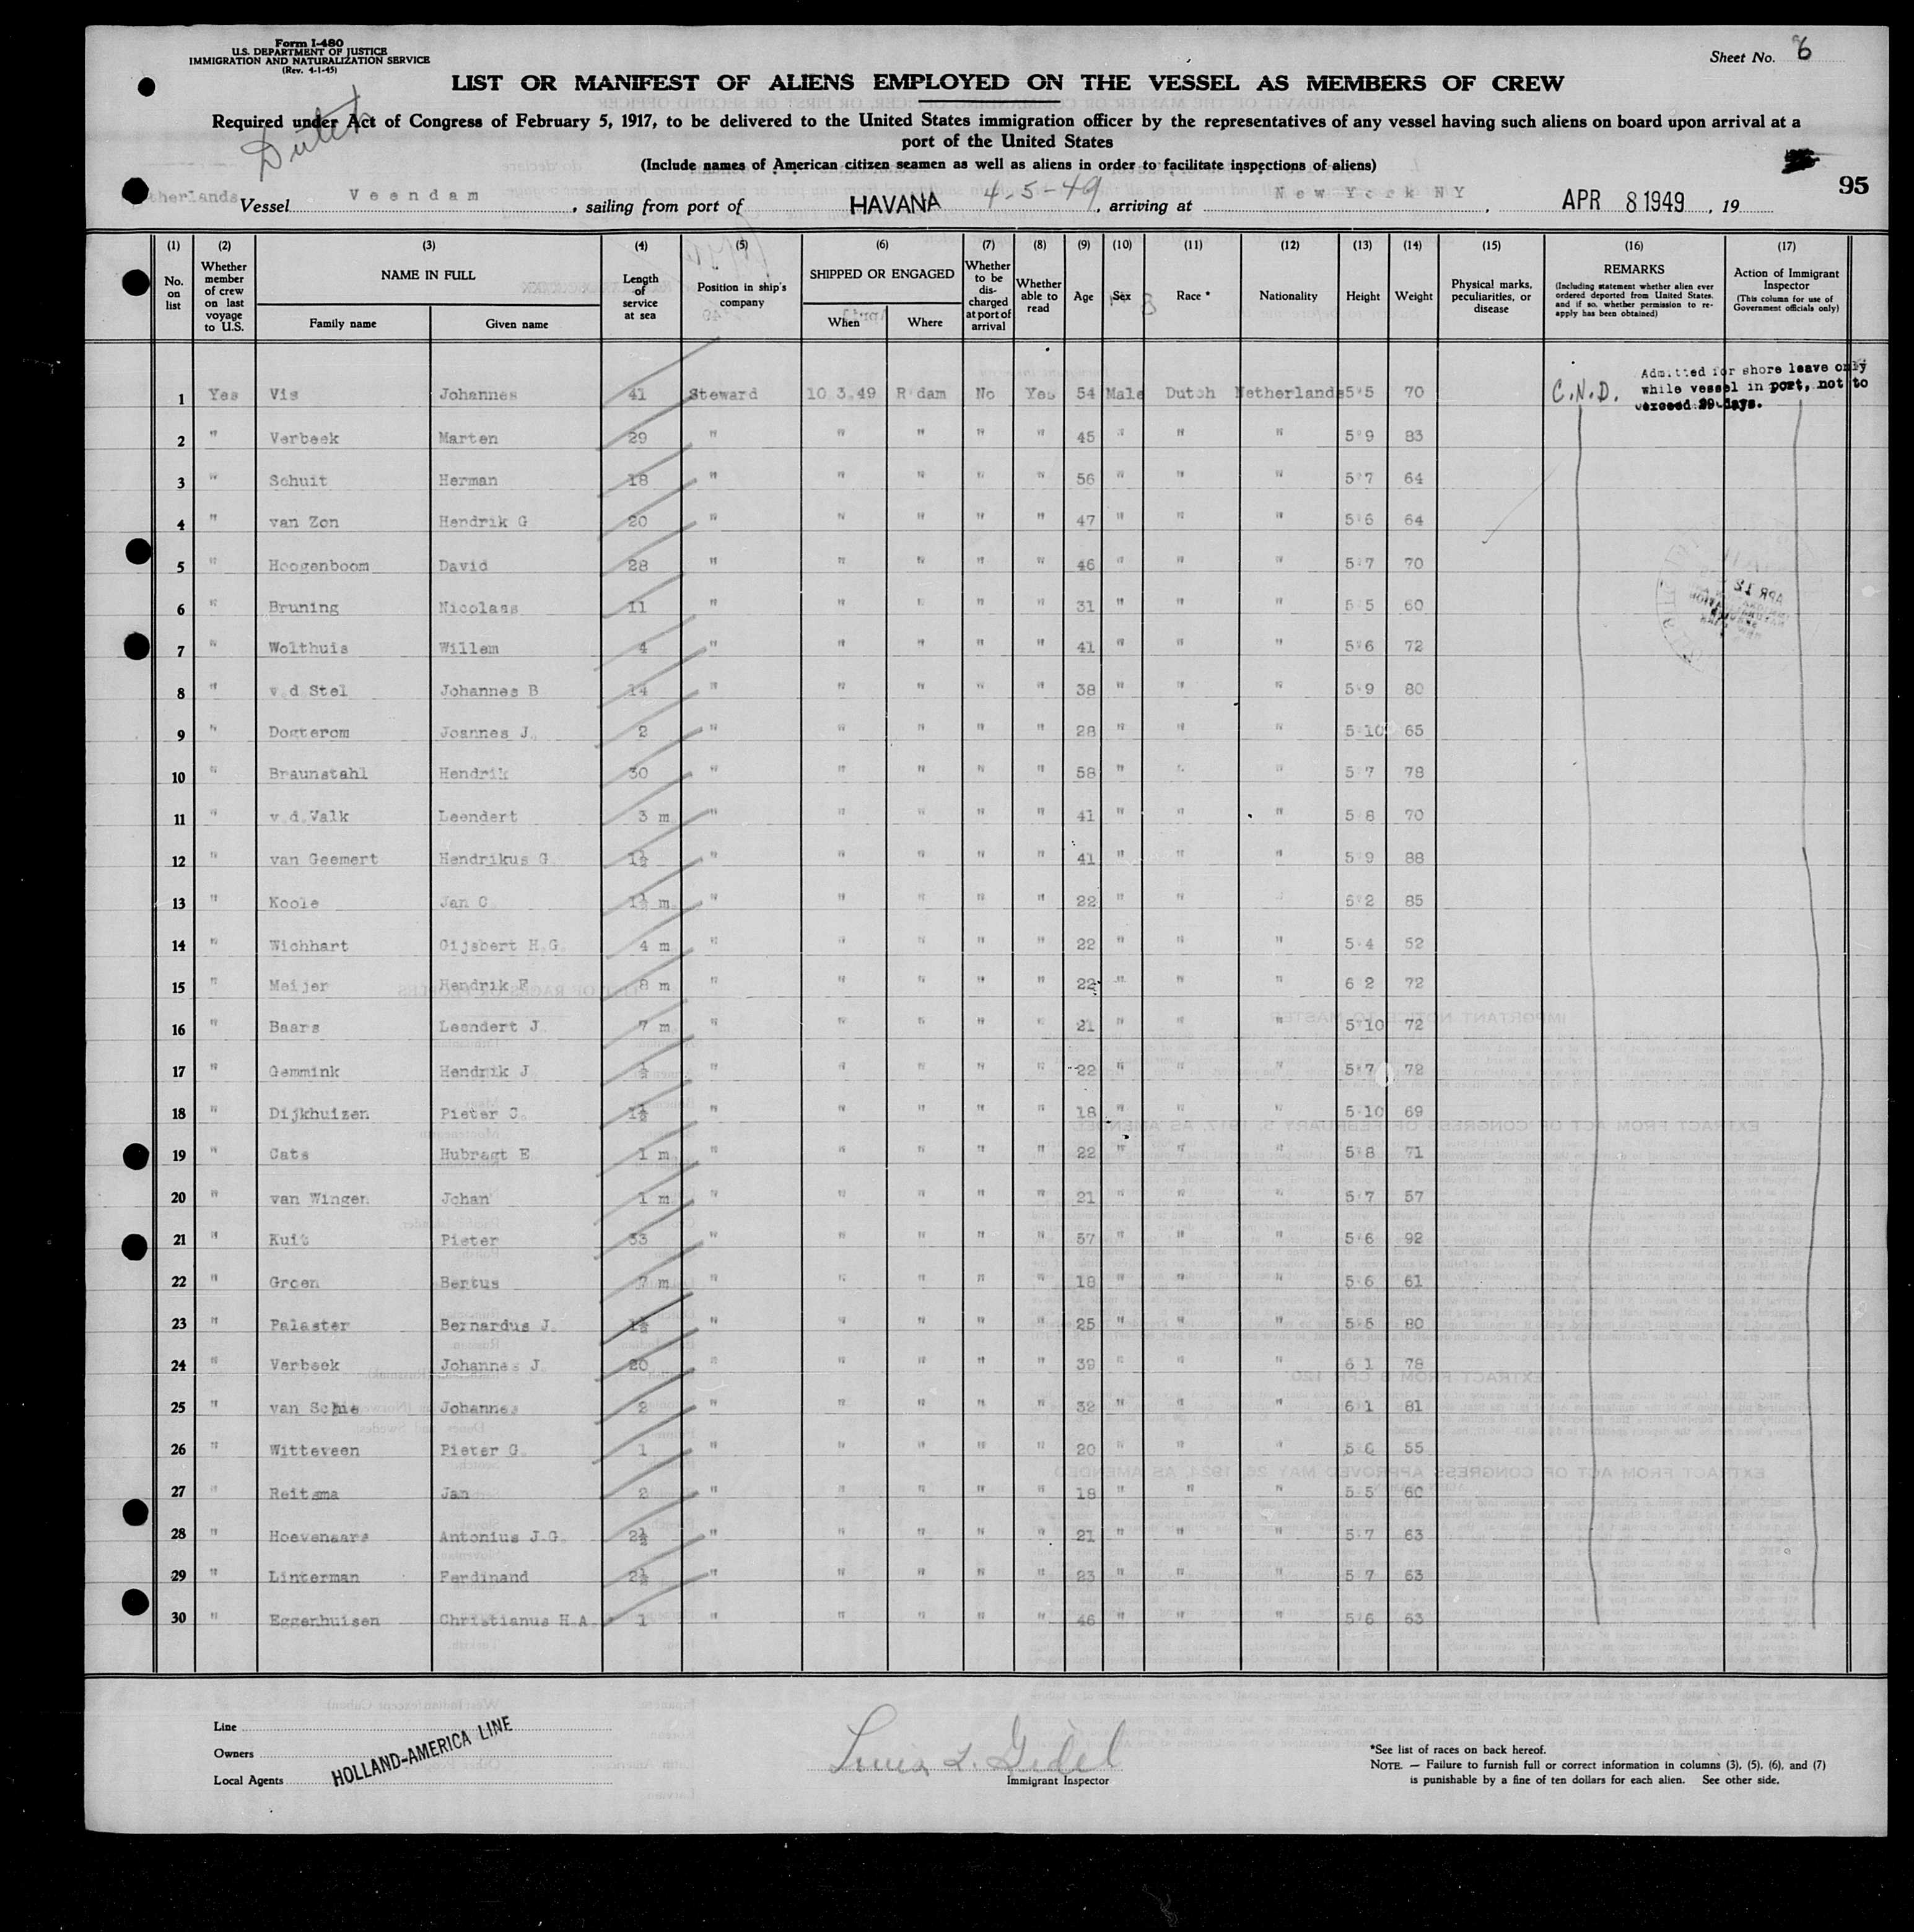 Form I-480
U.S. DEPARTMENT OF JUSTICE
IMMIGRATION AND NATURALIZATION SERVICE
(Rev. 4-1-45)
Sheet No. 6
LIST OR MANIFEST OF ALIENS EMPLOYED ON THE VESSEL AS MEMBERS OF CREW
Dutch
Required under Act of Congress of February 5, 1917, to be delivered to the United States immigration officer by the representatives of any vessel having such aliens on board upon arrival at a
port of the United States
(Include names of American citizen seamen as well as aliens in order to facilitate inspections of aliens)
95
therlands Vessel Veendam, sailing from port of HAVANA 4-5-49, arriving at New York NY, APR 8 1949, 19
(1) (2) (3) (4) (5) (6) (7) (8) (9) (10) (11) (12) (13) (14) (15) (16) (17)
No. on list
Whether member of crew on last voyage to U.S.
NAME IN FULL
Family name
Given name
Length of service at sea
Position in ship's company
SHIPPED OR ENGAGED
When
Where
Whether to be discharged at port of arrival
Whether able to read
Age
Sex
Race *
Nationality
Height
Weight
Physical marks, peculiarities, or disease
REMARKS
(Including statement whether alien ever ordered deported from United States, and if so, whether permission to re-apply has been obtained)
Action of Immigrant Inspector
(This column for use of Government officials only)
Admitted for shore leave only
while vessel in port, not to
exceed 29 days.
1 Yes Vis Johannes 41 Steward 10 3.49 R'dam No Yes 54 Male Dutch Netherlands 5'5 70 C.N.D.
2 " Verbeek Marten 29 " " " " " 45 " " " 5'9 83
3 " Schuit Herman 18 " " " " " 56 " " " 5'7 64
4 " van Zon Hendrik G 20 " " " " " 47 " " " 5'6 64
5 " Hoogenboom David 28 " " " " " 46 " " " 5'7 70
6 " Bruning Nicolaas 11 " " " " " 31 " " " 5 5 60
7 " Wolthuis Willem 4 " " " " " 41 " " " 5'6 72
8 " v.d.Stel Johannes B 14 " " " " " 38 " " " 5'9 80
9 " Dogterom Joannes J. 2 " " " " " 28 " " " 5'10 65
10 " Braunstahl Hendrik 30 " " " " " 58 " " " 5'7 78
11 " v.d.Valk Leendert 3 m " " " " " 41 " " " 5 8 70
12 " van Geemert Hendrikus G. 1½ " " " " " 41 " " " 5'9 88
13 " Koole Jan C 1½ m. " " " " " 22 " " " 6'2 85
14 " Wichhart Gijsbert H.G. 4 m " " " " " 22 " " " 5'4 52
15 " Meijer Hendrik F 8 m " " " " " 22 " " " 6 2 72
16 " Baars Leendert J. 7 m " " " " " 21 " " " 5'10 72
17 " Gemmink Hendrik J ½ " " " " " 22 " " " 5'7 72
18 " Dijkhuizen Pieter C. 1½ " " " " " 18 " " " 5'10 69
19 " Cats Hubragt E 1 m " " " " " 22 " " " 5'8 71
20 " van Wingen Johan 1 m " " " " " 21 " " " 5'7 57
21 " Kuit Pieter 33 " " " " " 57 " " " 5'6 92
22 " Groen Bertus 7 m " " " " " 18 " " " 5'6 61
23 " Palaster Bernardus J. 1½ " " " " " 25 " " " 5'6 80
24 " Verbeek Johannes J. 20 " " " " " 39 " " " 6 1 78
25 " van Schie Johannes 2 " " " " " 32 " " " 6'1 81
26 " Witteveen Pieter G. 1 " " " " " 20 " " " 5'6 55
27 " Reitsma Jan 2 " " " " " 18 " " " 5'5 60
28 " Hoevenaars Antonius J.G. 2½ " " " " " 21 " " " 5'7 63
29 " Linterman Ferdinand 2½ " " " " " 23 " " " 5 7 63
30 " Eggenhuisen Christianus H.A. 1 " " " " " 46 " " " 5'6 63
Line
Owners
Local Agents
HOLLAND-AMERICA LINE
Louis L. Gidel
Immigrant Inspector
*See list of races on back hereof.
NOTE. — Failure to furnish full or correct information in columns (3), (5), (6), and (7)
is punishable by a fine of ten dollars for each alien. See other side.